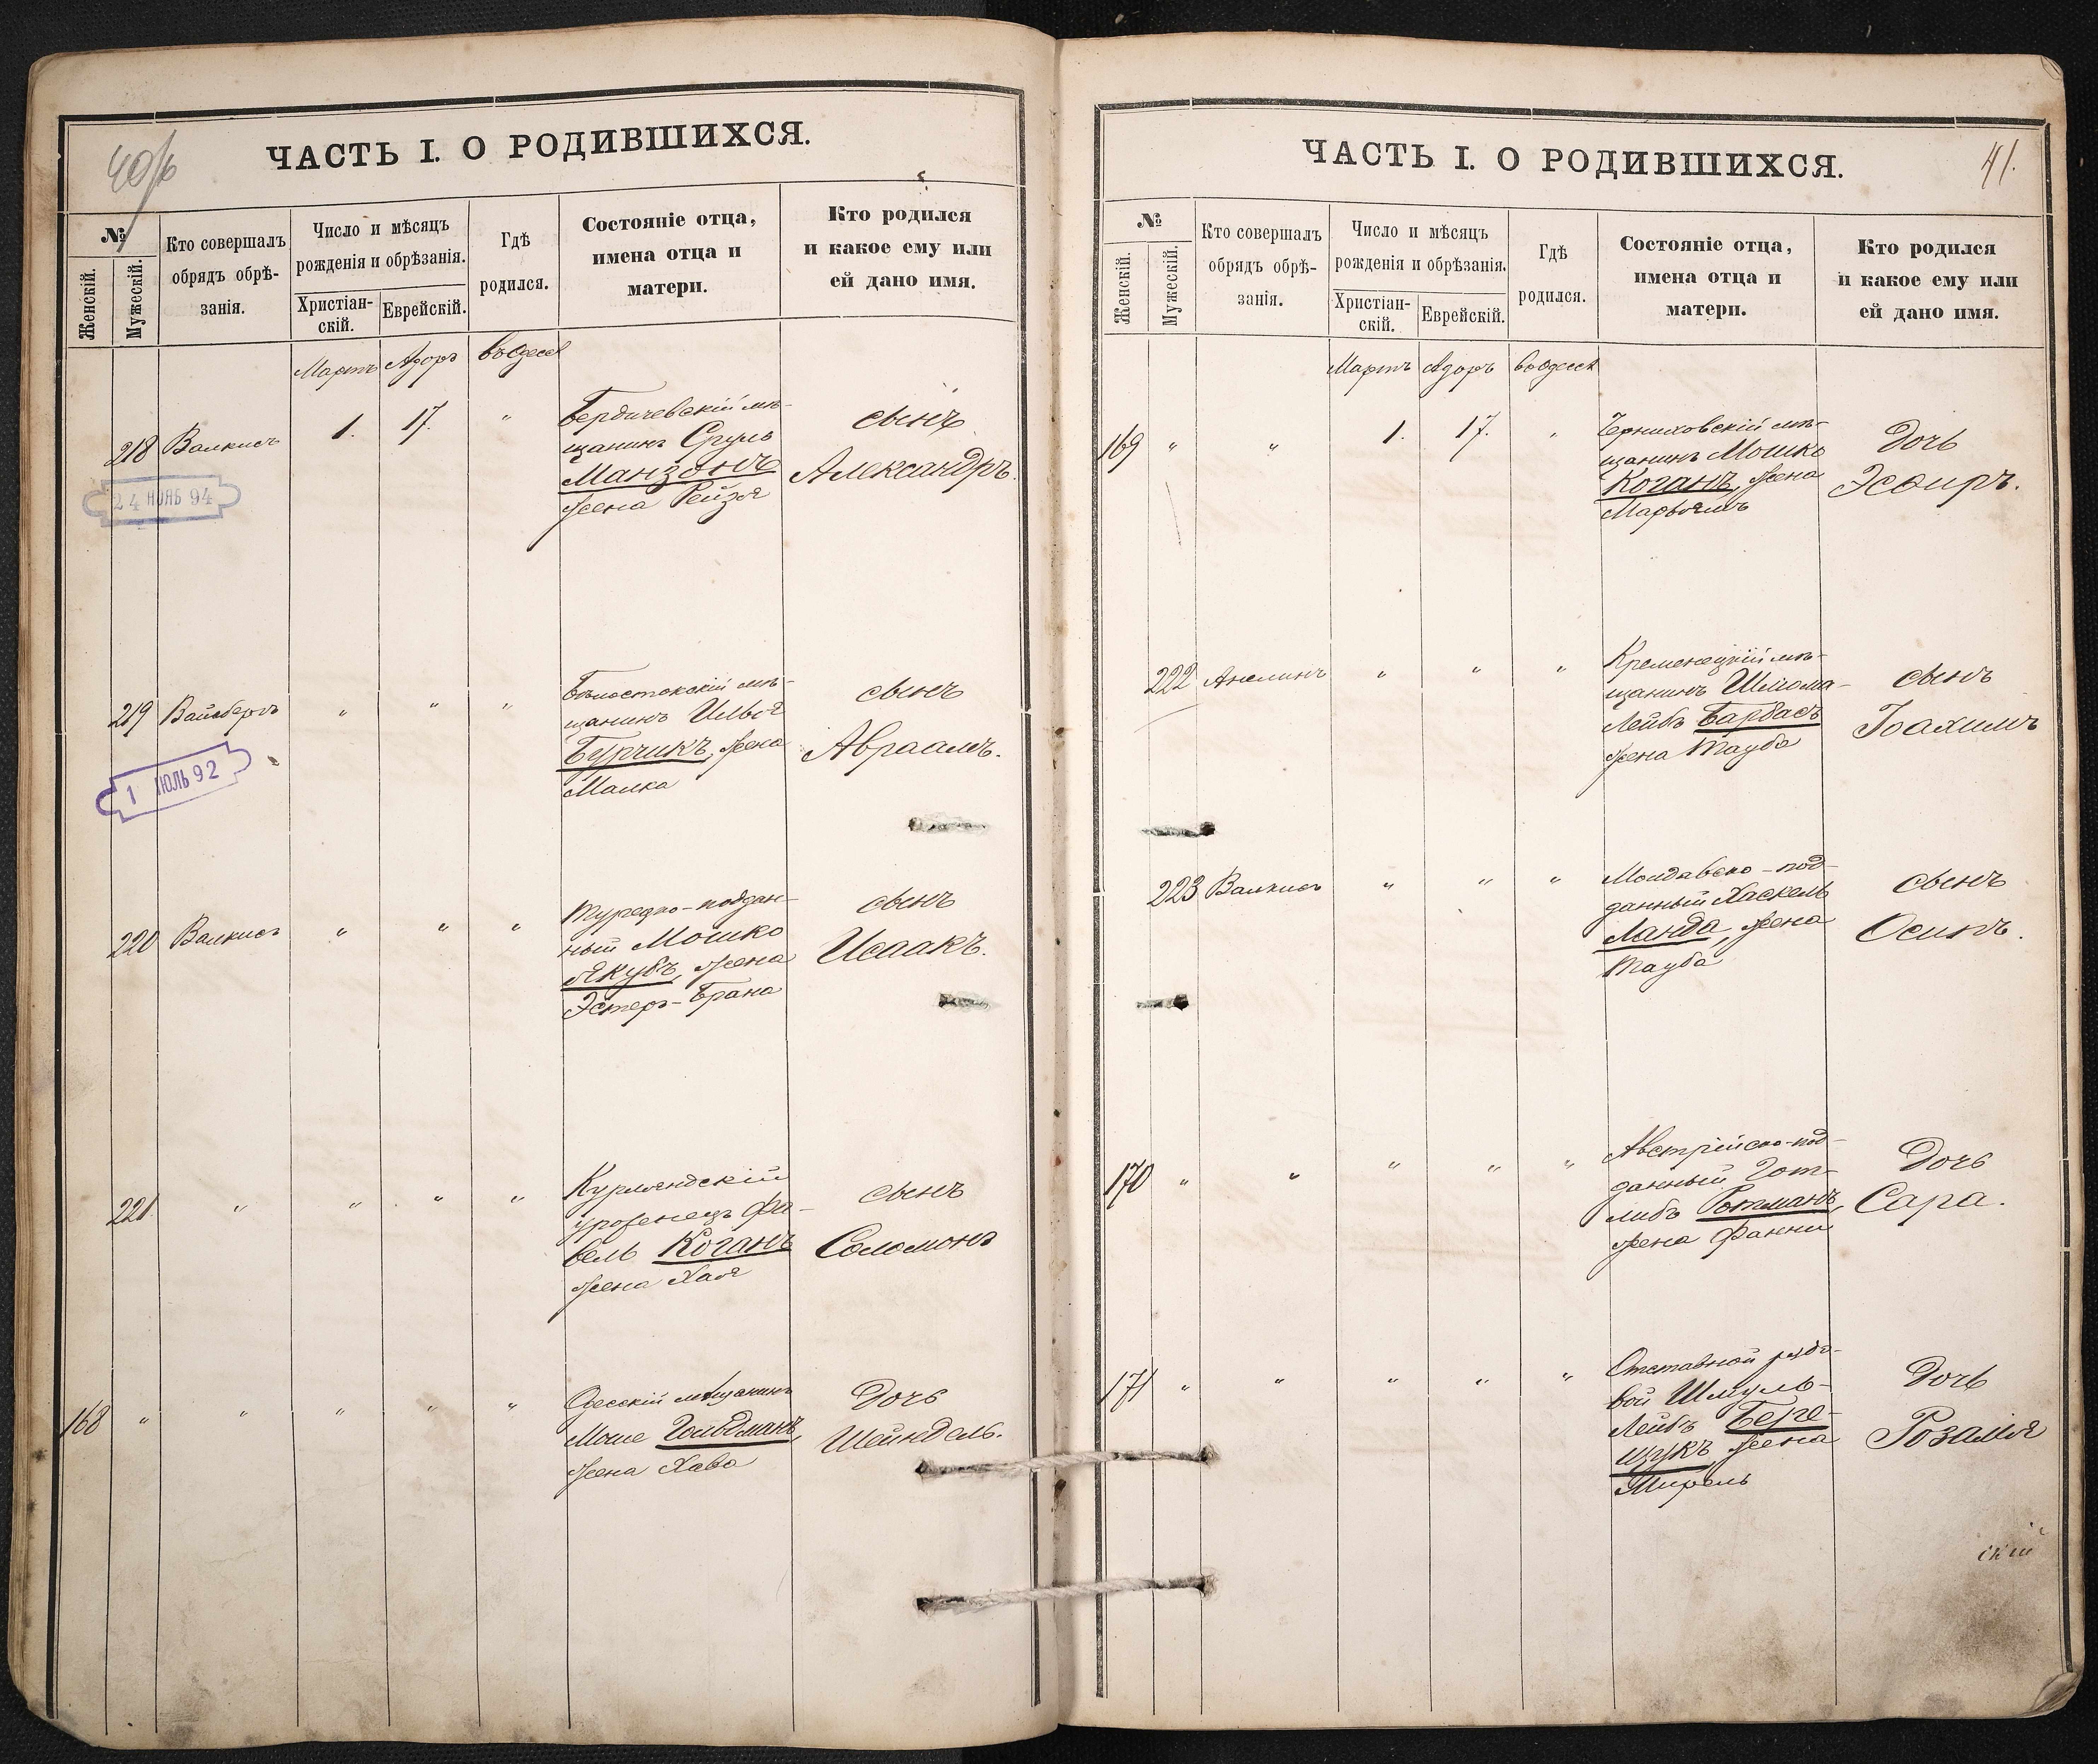 40/б
ЧАСТЬ I. О РОДИВШИХСЯ.
№
Женскій.
Мужескій.
Кто совершалъ
обрядъ обрѣ-
занія.
Число и мѣсяцъ
рожденія и обрѣзанія.
Христіан-
скій.
Еврейскій.
Гдѣ
родился.
Состояніе отца,
имена отца и
матери.
Кто родился
и какое ему или
ей дано имя.
Мартъ Адоръ въ Одессѣ
218 Валкисъ 1. 17. "
Бердичевскій мѣ-
щанинъ Сруль
Манзонъ
жена Рейзя
сынъ
Александръ.
24 НОЯБ 94
219 Вайсбергъ " " "
Бѣлостокскій мѣ-
щанинъ Илья
Бурчикъ, жена
Малка
сынъ
Авраамъ.
1 ІЮЛЬ 92
220 Валкисъ " " "
Турецко-поддан-
ный Мошко
Якубъ, жена
Эстеръ-Брана
сынъ
Исаакъ.
221 " " " "
Курляндскій
уроженецъ Фа-
вель Коганъ
жена Хая
сынъ
Соломонъ
168 " " " " "
Одесскій мѣщанинъ
Моше Гольдманъ,
жена Хава
Дочь
Шейндель.
41.
ЧАСТЬ I. О РОДИВШИХСЯ.
№
Женскій.
Мужескій.
Кто совершалъ
обрядъ обрѣ-
занія.
Число и мѣсяцъ
рожденія и обрѣзанія.
Христіан-
скій.
Еврейскій.
Гдѣ
родился.
Состояніе отца,
имена отца и
матери.
Кто родился
и какое ему или
ей дано имя.
Мартъ Адоръ въ Одессѣ
169 " " 1. 17. "
Черниховскій мѣ-
щанинъ Мошко
Коганъ, жена
Марьямъ
Дочь
Эсѳиръ.
222 " " "
Кременецкій мѣ-
щанинъ Шлиома-
Лейбъ Барбасъ
жена Тауба
сынъ
Іоахимъ
223 Валкисъ " " "
Молдавско-под-
данный Хаскель
Ланда, жена
Тауба
сынъ
Осипъ.
170 " " " " "
Австрійско-под-
данный Гот-
либъ Ротманъ,
жена Фанни
Дочь
Сара.
171 " " " " "
Отставной рядо-
вой Шмуль-
Лейбъ Бере-
щукъ, жена
Мирель
Дочь
Розалія
скій